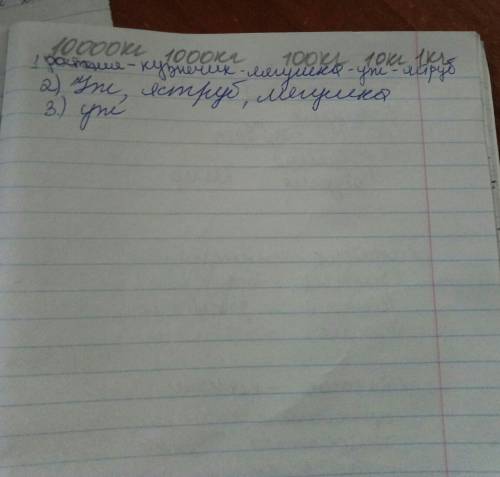 10000кг 1000кг 100кг 10кг 1кг
1 растения - кузнечик - лягушка - уж - яструб
2) Уж, яструб, лягушка
3.) уж